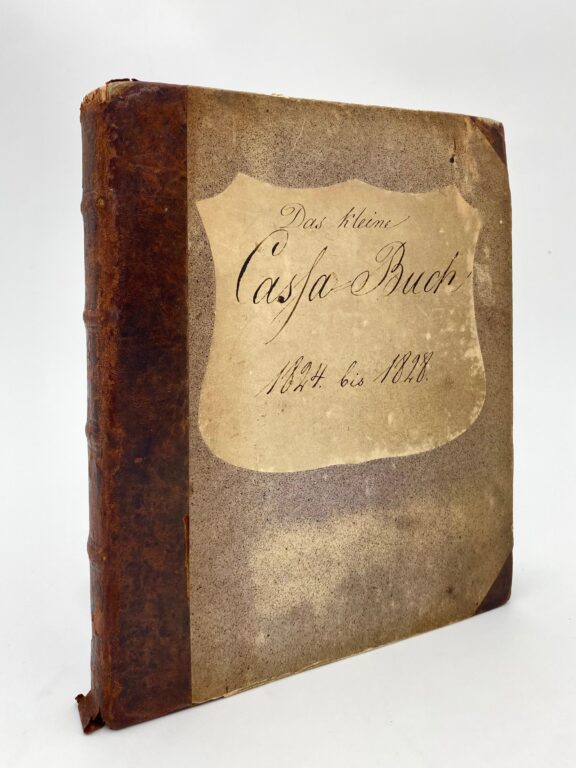 Das kleine
Caſsa-Buch
1824. bis 1828.